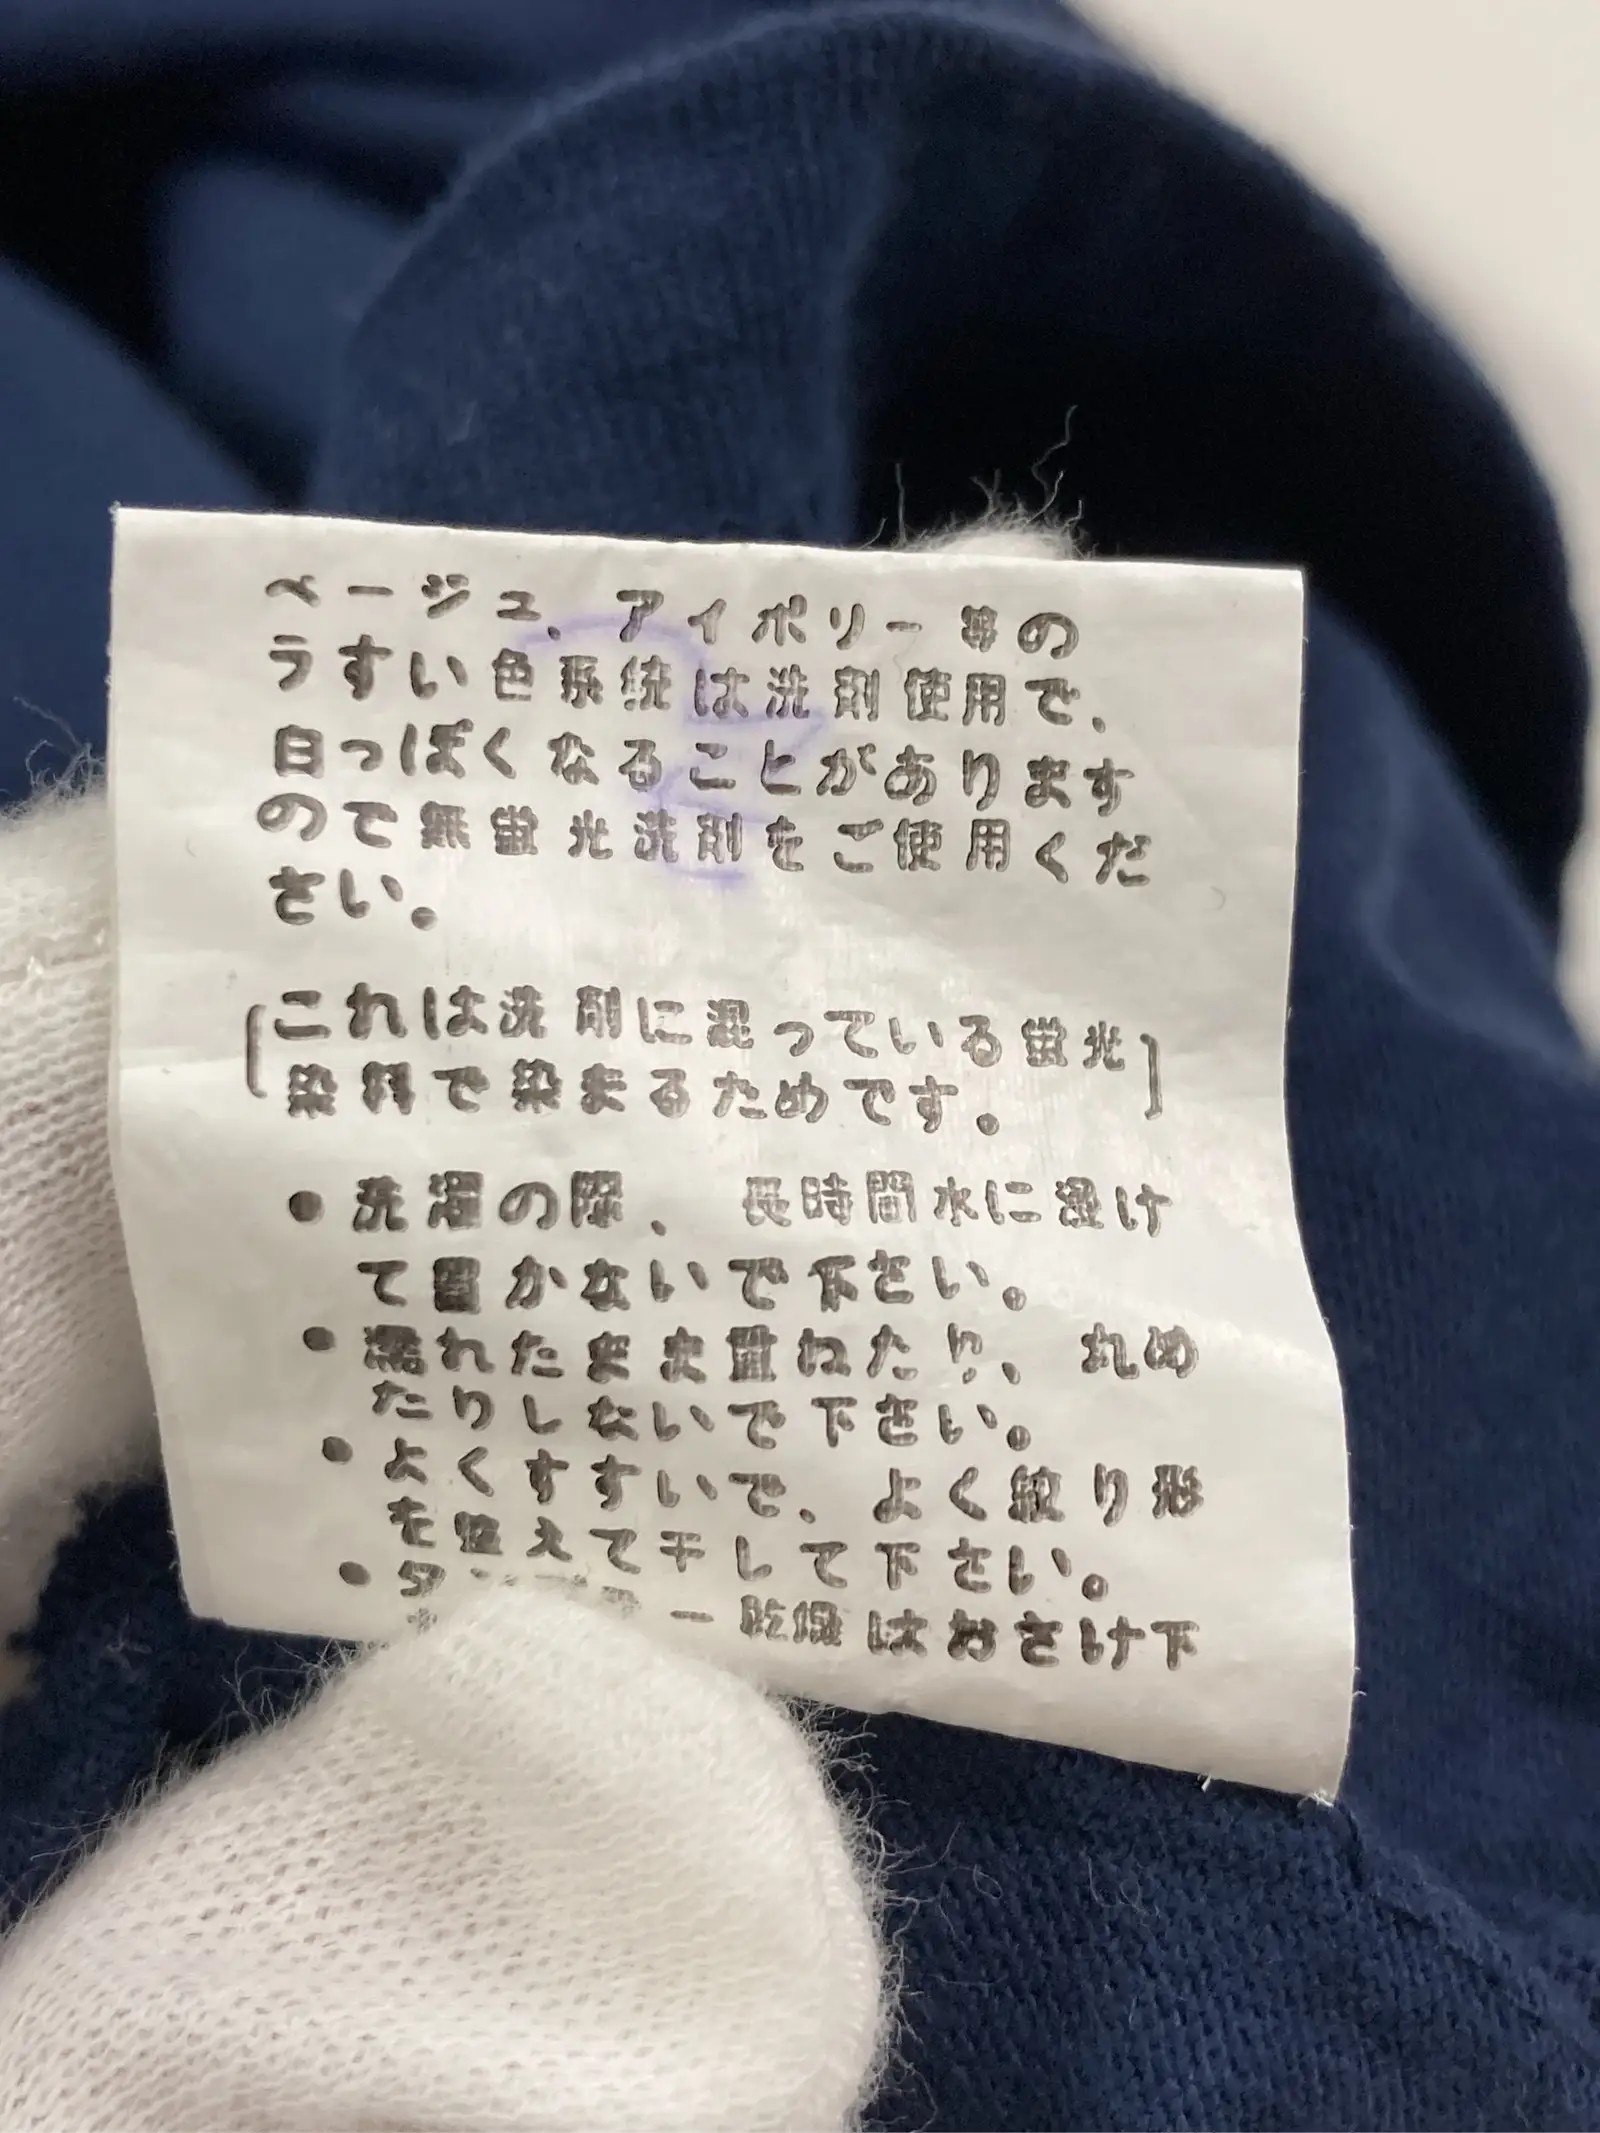 ベージュ、アイボリー等の
うすい色系統は洗剤使用で、
白っぽくなることがあります
ので無蛍光洗剤をご使用くだ
さい。
[これは洗剤に混っている蛍光]
[染料で染まるためです。]
● 洗濯の際、長時間水に漬け
て置かないで下さい。
● 濡れたまま重ねたり、丸め
たりしないで下さい。
● よくすすいで、よく絞り形
を整えて干して下さい。
● タ ー乾燥はおさけ下